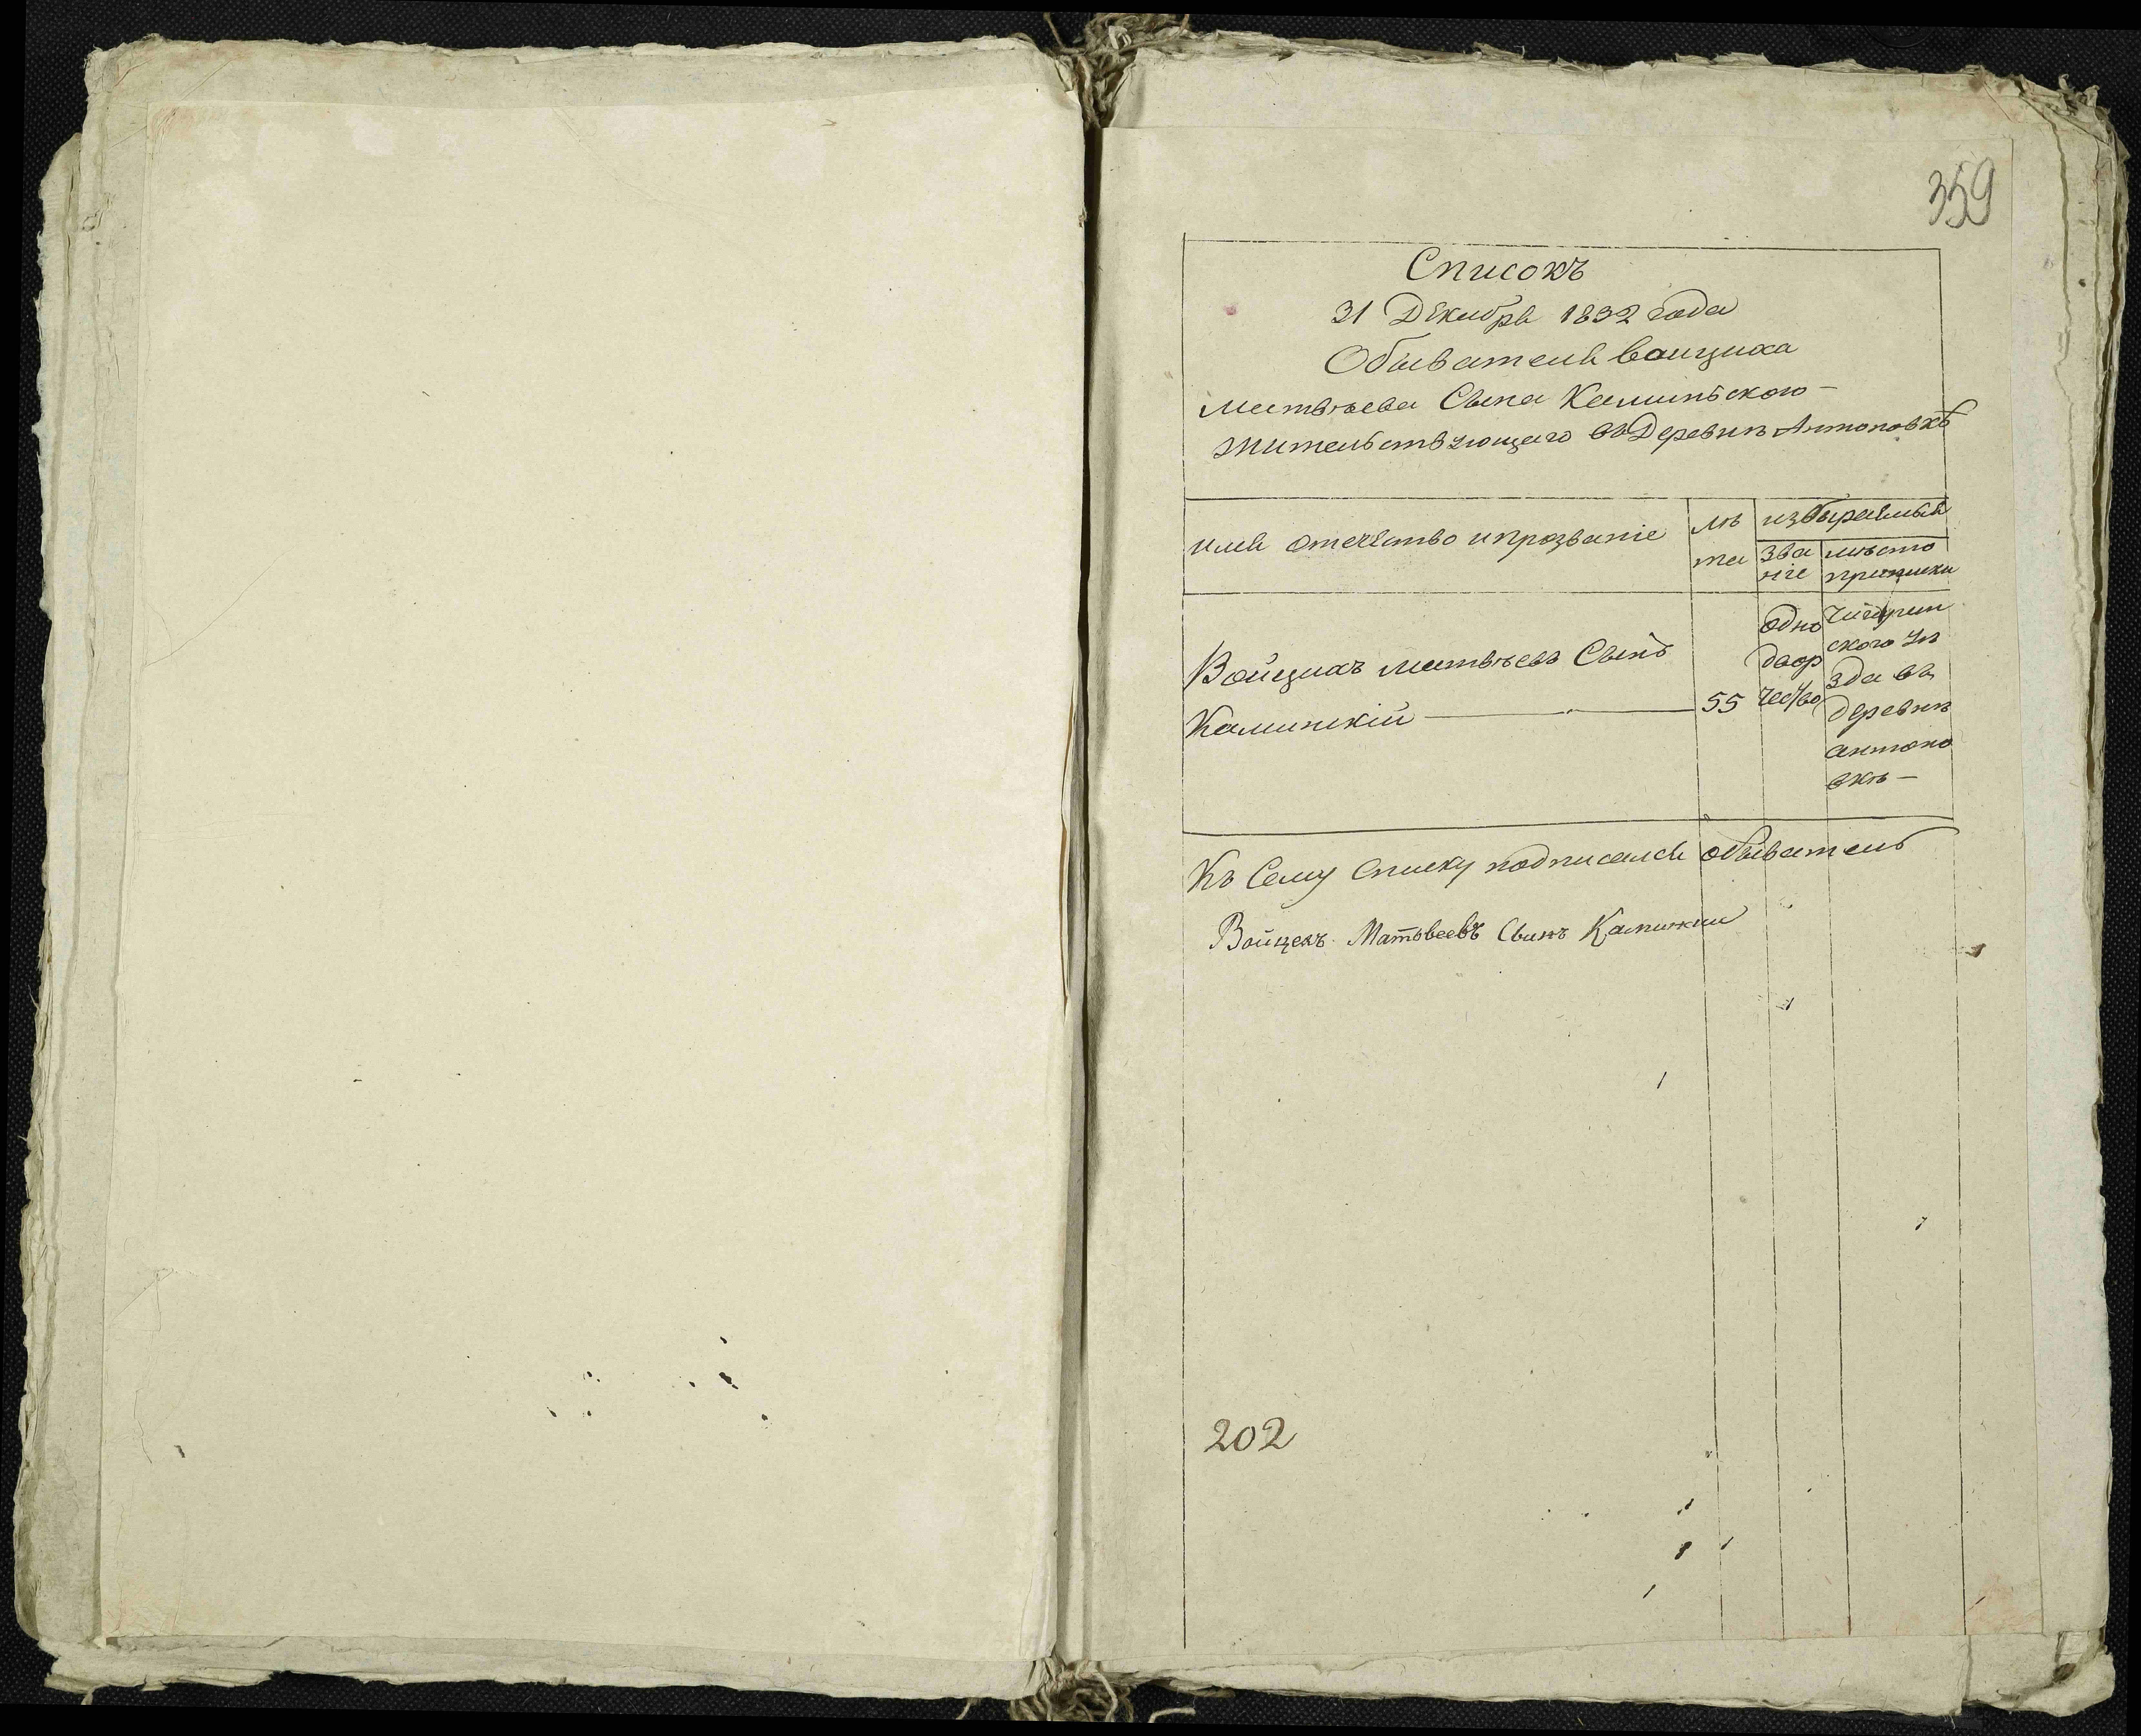 359
Списокъ
31 Декабря 1832 года
Обывателя Войциха
Матвѣева Сына Каминьского
жительствующаго въ Деревнѣ Антоновкѣ
имя отечество и прозваніе
лѣ
та
избираемый
Зва
ніе
мѣсто
приписки
Войцихъ Матвѣевъ Сынъ
Каминскій
55
одно
двор
чество
Чигирин
ского уѣ
зда въ
деревнѣ
антоно
вкѣ
Къ Сему Списку подписался обыватель
Войцехъ Матвеевъ Сынъ Камински
202